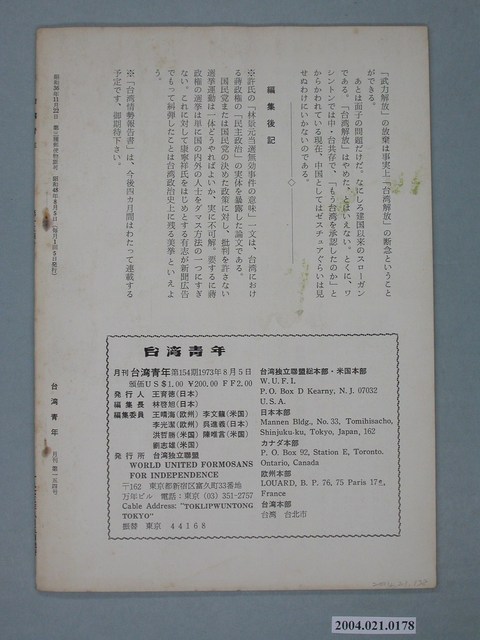 「武力解放」の放棄は事実上「台湾解放」の断念ということ
ができる。
あとは面子の問題だけだ。なにしろ建国以来のスローガン
である。「台湾解放」はやめた、とはいえない。とくに、ワ
シントンでは中・台共存で、「もう台湾を承認したのか」と
からかわれている現在、中国としてはゼスチュアぐらいは見
せぬわけにいかないのである。
編集後記
※許氏の「林振元当選無効事件の意味」一文は、台湾におけ
る蔣政権の「民主政治」の実体を暴露した論文である。
国民党または国民党の決めた政策に対し、批判を許さない
選挙運動は一体どうやればよいか、実に不可解。要するに蔣
政権の選挙は単に国の内外の人士をダマス方法の一つにすぎ
ない。これに対して康寧祥氏をはじめとする有志が新聞広告
でもって糾弾したことは台湾政治史上に残る美挙といえよ
う。
※「台湾情勢報告書」は、今後四カ月間はわたって連載する
予定です、御期待下さい。
台湾青年
月刊 台湾青年 第154期1973年8月5日
頒価US$1.00 ¥200.00 FF2.00
発行人 王育徳(日本)
編集長 林啓旭(日本)
編集委員 王晴海(欧州) 李文雄(米国)
李光潔(欧州) 呉進義(日本)
洪哲勝(米国) 陳唯言(米国)
劉志雄(米国)
発行所 台湾独立聯盟
WORLD UNITED FORMOSANS
FOR INDEPENDENCE
〒162 東京都新宿区富久町33番地
万年ビル 電話:東京 (03) 351-2757
Cable Address: "TOKLIPWUNTONG
TOKYO"
振替 東京 44168
台湾独立聯盟総本部・米国本部
W.U.F.I.
P.O. Box D Kearny, N.J. 07032
U.S.A.
日本本部
Mannen Bldg., No. 33, Tomihisacho,
Shinjuku-ku, Tokyo, Japan, 162
カナダ本部
P. O. Box 92, Station E, Toronto.
Ontario, Canada
欧州本部
LOUARD, B. P. 76, 75 Paris 17e,
France
台湾本部
台湾 台北市
台湾青年 月刊 第一五四号
2004.021.0178